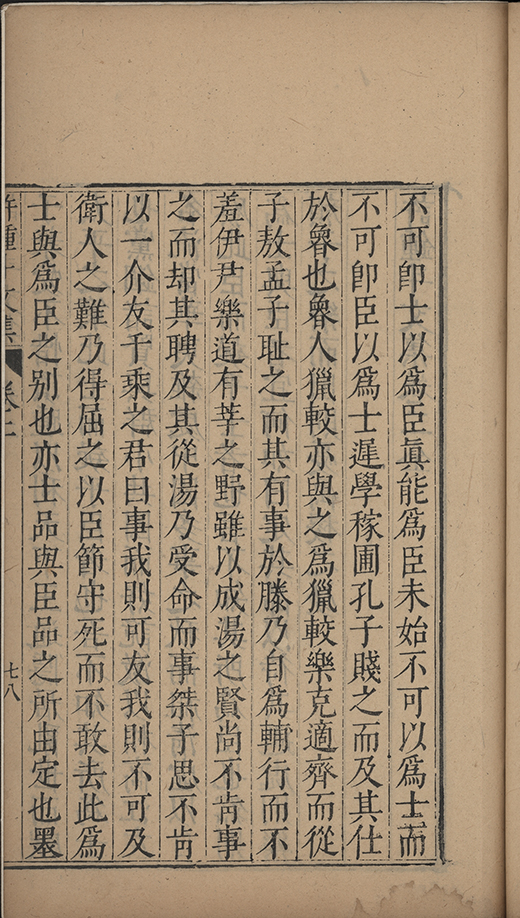 不可卽士以爲臣眞能爲臣未始不可以爲士而
不可卽臣以爲士遲學稼圃孔子賤之而及其仕
於魯也魯人獵較亦與之爲獵較樂克適齊而從
子敖孟子耻之而其有事於滕乃自爲輔行而不
羞伊尹樂道有莘之野雖以成湯之賢尚不肯事
之而却其聘及其從湯乃受命而事桀子思不肯
以一介友千乘之君曰事我則可友我則不可及
衛人之難乃得屈之以臣節守死而不敢去此爲
士與爲臣之别也亦士品與臣品之所由定也墨
許鍾斗文集 卷二
七八